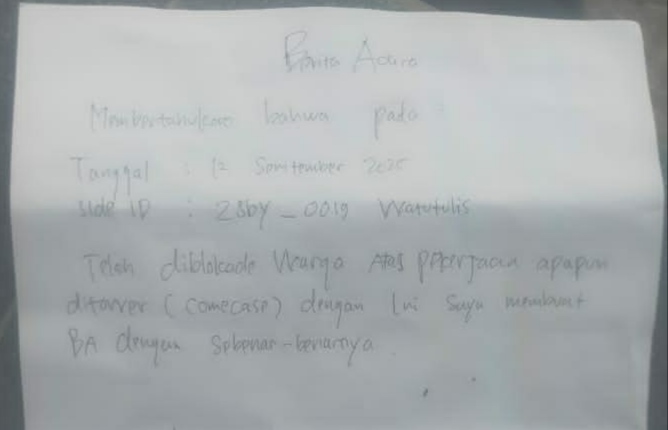 Berita Acara
Memberitahukan bahwa pada
Tanggal : 12 Semtember 2025
side ID : 2sby_0019 Watutulis
Teloh diblokade Warga Atas pekerjaan apapun
ditower (comecase) dengan Ini Saya membuat
BA dengan Sebenar-benarnya.